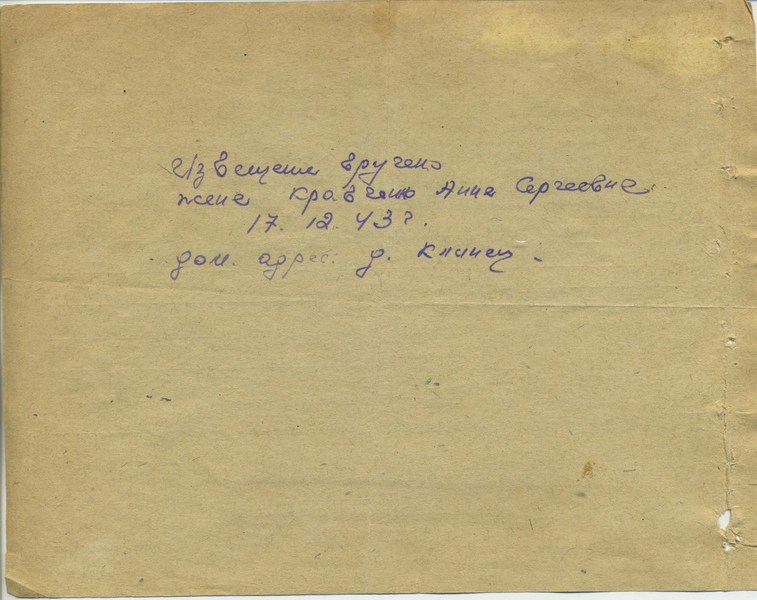 Извещение вручено
жене Кравченко Анне Сергеевне.
17. 12. 43 г.
дом. адрес: д. Клинец.